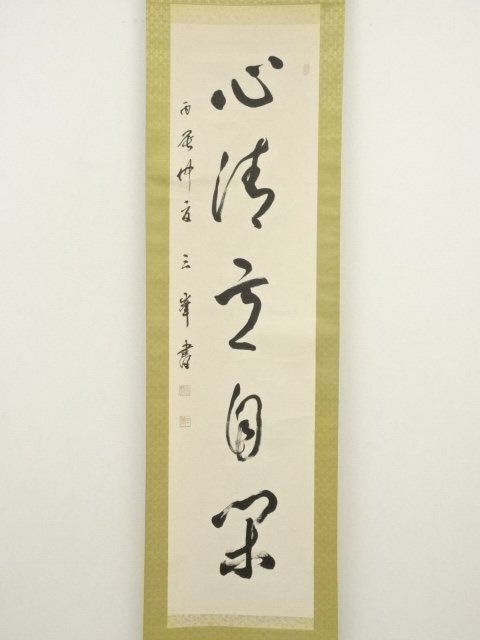 心清意自閑
丙辰仲夏 三峯書